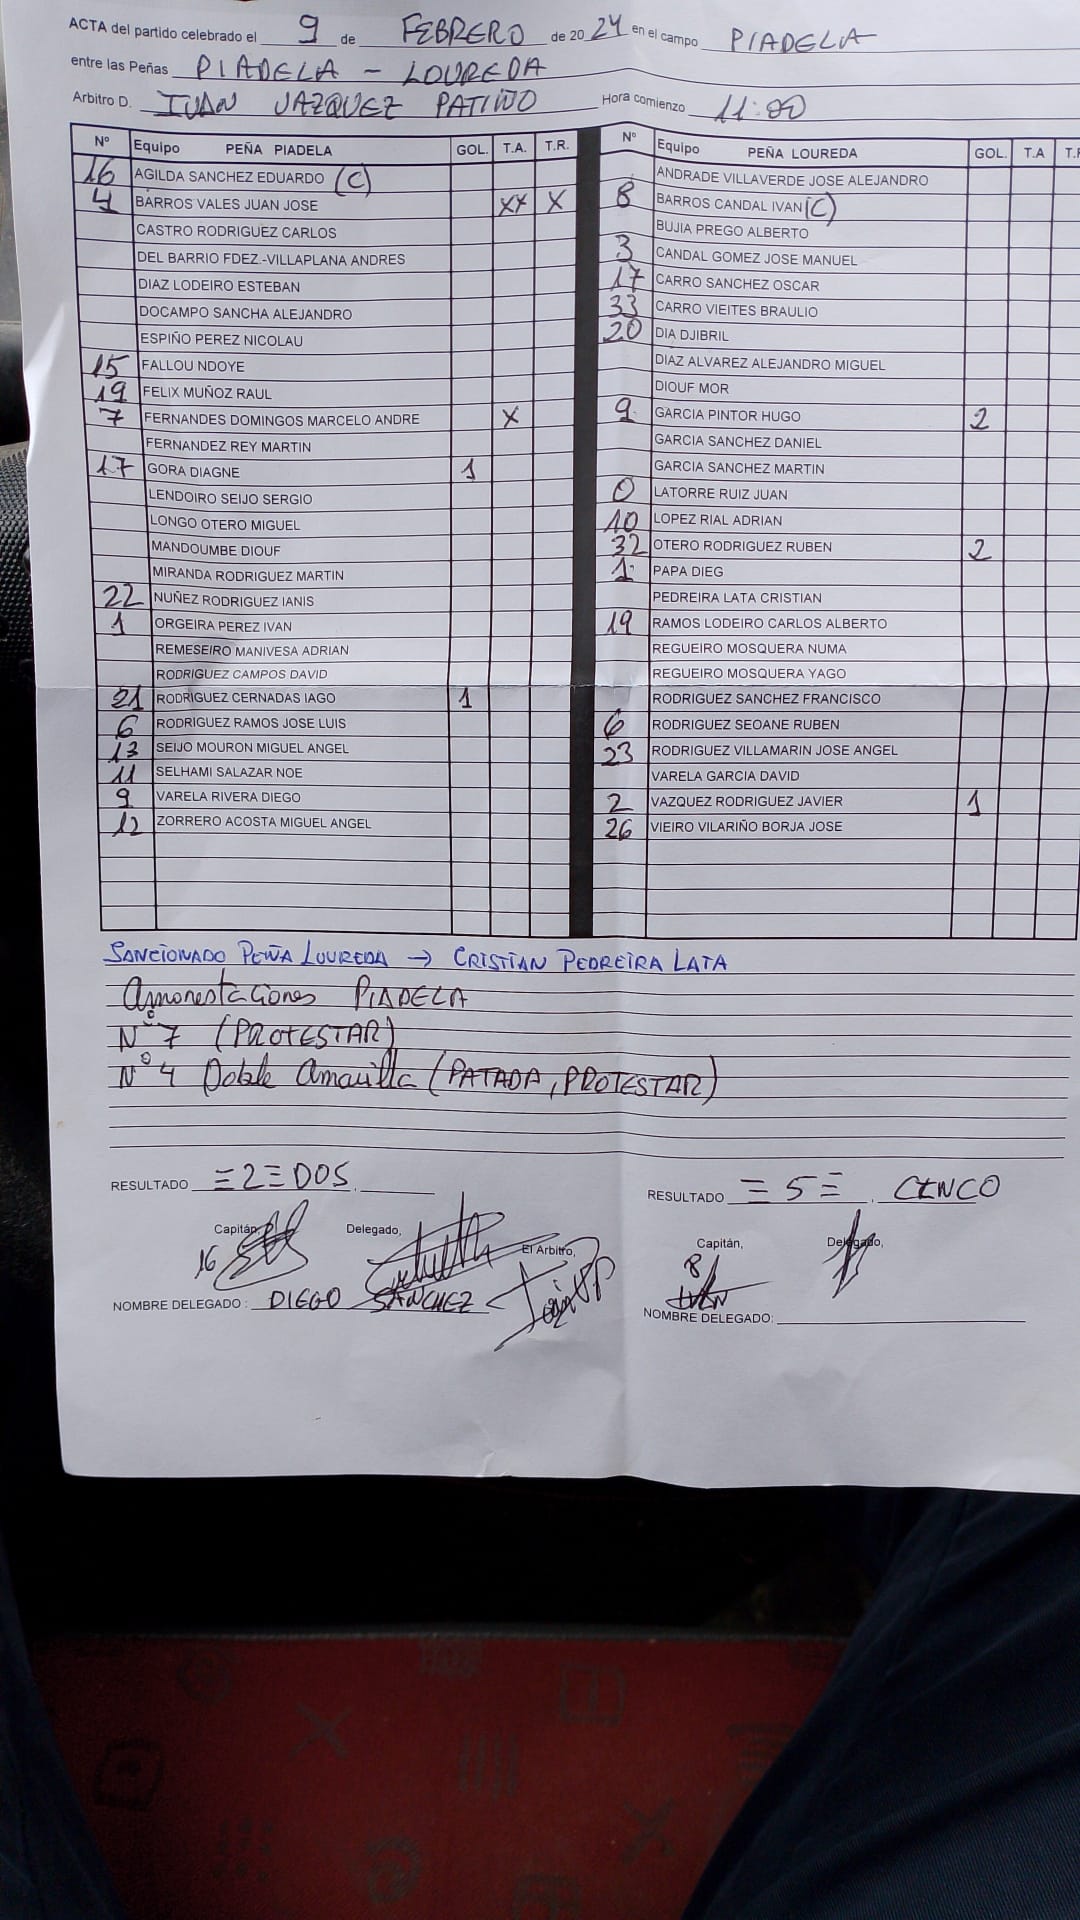 ACTA del partido celebrado el 9 de FEBRERO de 2024 en el campo PIADELA
entre las Peñas PIADELA - LOUREDA
Arbitro D. IVAN VAZQUEZ PATIÑO Hora comienzo 11:00
Nº Equipo PEÑA PIADELA GOL. T.A. T.R.
16 AGILDA SANCHEZ EDUARDO (C)
4 BARROS VALES JUAN JOSE XX X
CASTRO RODRIGUEZ CARLOS
DEL BARRIO FDEZ.-VILLAPLANA ANDRES
DIAZ LODEIRO ESTEBAN
DOCAMPO SANCHA ALEJANDRO
ESPIÑO PEREZ NICOLAU
15 FALLOU NDOYE
19 FELIX MUÑOZ RAUL
7 FERNANDES DOMINGOS MARCELO ANDRE X
FERNANDEZ REY MARTIN
17 GORA DIAGNE 1
LENDOIRO SEIJO SERGIO
LONGO OTERO MIGUEL
MANDOUMBE DIOUF
MIRANDA RODRIGUEZ MARTIN
22 NUÑEZ RODRIGUEZ IANIS
1 ORGEIRA PEREZ IVAN
REMESEIRO MANIVESA ADRIAN
RODRIGUEZ CAMPOS DAVID
21 RODRIGUEZ CERNADAS IAGO 1
6 RODRIGUEZ RAMOS JOSE LUIS
13 SEIJO MOURON MIGUEL ANGEL
11 SELHAMI SALAZAR NOE
9 VARELA RIVERA DIEGO
12 ZORRERO ACOSTA MIGUEL ANGEL
Nº Equipo PEÑA LOUREDA GOL. T.A T.R
ANDRADE VILLAVERDE JOSE ALEJANDRO
8 BARROS CANDAL IVAN (C)
BUJIA PREGO ALBERTO
3 CANDAL GOMEZ JOSE MANUEL
17 CARRO SANCHEZ OSCAR
33 CARRO VIEITES BRAULIO
20 DIA DJIBRIL
DIAZ ALVAREZ ALEJANDRO MIGUEL
DIOUF MOR
9 GARCIA PINTOR HUGO 2
GARCIA SANCHEZ DANIEL
GARCIA SANCHEZ MARTIN
0 LATORRE RUIZ JUAN
10 LOPEZ RIAL ADRIAN
32 OTERO RODRIGUEZ RUBEN 2
1 PAPA DIEG
PEDREIRA LATA CRISTIAN
19 RAMOS LODEIRO CARLOS ALBERTO
REGUEIRO MOSQUERA NUMA
REGUEIRO MOSQUERA YAGO
RODRIGUEZ SANCHEZ FRANCISCO
6 RODRIGUEZ SEOANE RUBEN
23 RODRIGUEZ VILLAMARIN JOSE ANGEL
VARELA GARCIA DAVID
2 VAZQUEZ RODRIGUEZ JAVIER 1
26 VIEIRO VILARIÑO BORJA JOSE
SANCIONADO PEÑA LOUREDA → CRISTIAN PEDREIRA LATA
Amonestaciones PIADELA
Nº 7 (PROTESTAR)
Nº 4 Doble Amarilla (PATADA, PROTESTAR)
RESULTADO =2= DOS
RESULTADO =5= CINCO
Capitán, Delegado, El Arbitro,
16
NOMBRE DELEGADO : DIEGO SANCHEZ
Capitán, Delegado,
8
IVAN
NOMBRE DELEGADO: